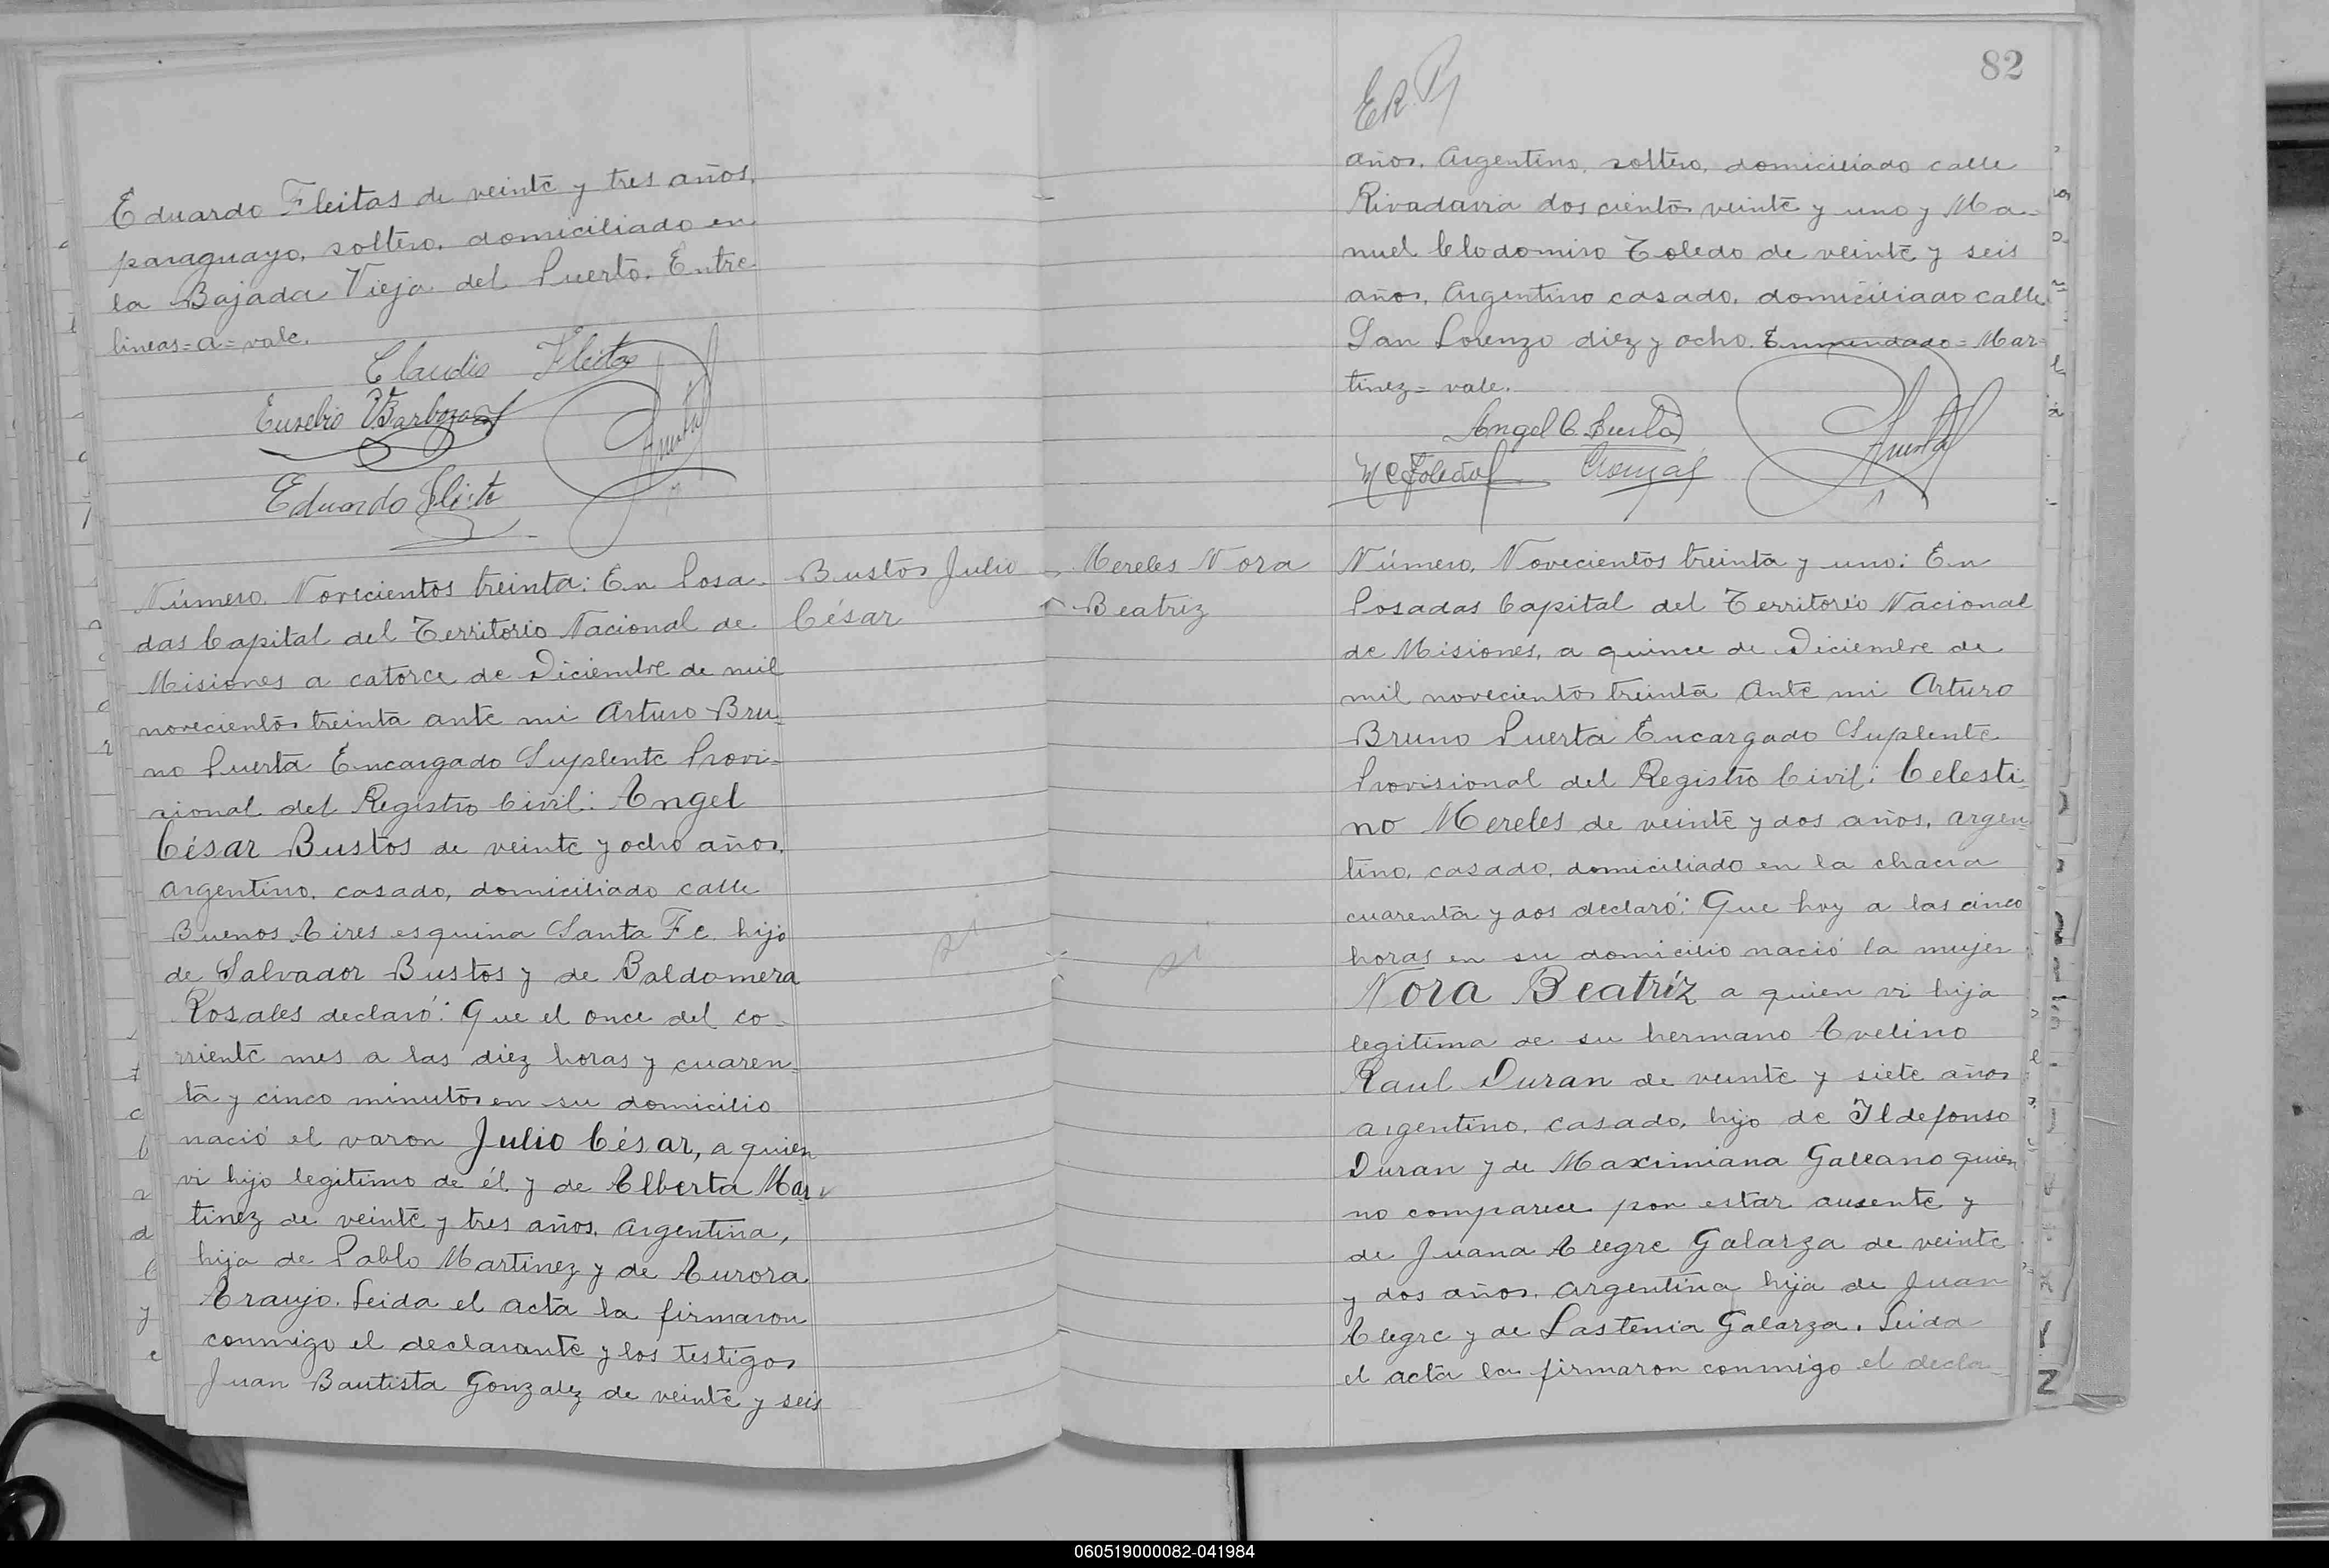 Eduardo Fleitas de veinte y tres años,
paraguayo, soltero, domiciliado en
la Bajada Vieja del Puerto. Entre
lineas=a=vale.
Claudio Fleitas
Eusebio Barboza
Eduardo Fleita
Bustos Julio
César
Número. Novecientos treinta: En Posa-
das Capital del Territorio Nacional de
Misiones a catorce de Diciembre de mil
novecientos treinta ante mi Arturo Bru-
no Puerta Encargado Suplente Provi-
sional del Registro Civil: Angel
César Bustos de veinte y ocho años,
argentino, casado, domiciliado calle
Buenos Aires esquina Santa Fe hijo
de Salvador Bustos y de Baldomera
Rosales declaró: Que el once del co-
rriente mes a las diez horas y cuaren-
ta y cinco minutos en su domicilio
nació el varon Julio César, a quien
vi hijo legitimo de él y de Alberta Mar-
tinez de veinte y tres años, argentina,
hija de Pablo Martinez y de Aurora
Araujo. Leida el acta la firmaron
conmigo el declarante y los testigos
Juan Bautista Gonzalez de veinte y seis
82
años, Argentino, soltero, domiciliado calle
Rivadavia dos cientos veinte y uno y Ma-
nuel Clodomiro Toledo de veinte y seis
años, Argentino casado, domiciliado calle
San Lorenzo diez y ocho. Enmendado=Mar-
tinez=vale.
Angel C. Bustos
M C Toledo
Puerta
Mereles Nora
Beatriz
Número, Novecientos treinta y uno: En
Posadas Capital del Territorio Nacional
de Misiones, a quince de Diciembre de
mil novecientos treinta Ante mi Arturo
Bruno Puerta Encargado Suplente
Provisional del Registro Civil: Celesti-
no Mereles de veinte y dos años, argen-
tino, casado, domiciliado en la chacra
cuarenta y dos declaró: Que hoy a las cinco
horas en su domicilio nació la mujer
Nora Beatríz a quien vi hija
legitima de su hermano Avelino
Raul Duran de veinte y siete años
argentino, casado, hijo de Ildefonso
Duran y de Maximiana Galeano quien
no comparece por estar ausente y
de Juana Alegre Galarza de veinte
y dos años, argentina hija de Juan
Alegre y de Lastenia Galarza. Leida
el acta la firmaron conmigo el decla-
060519000082-041984